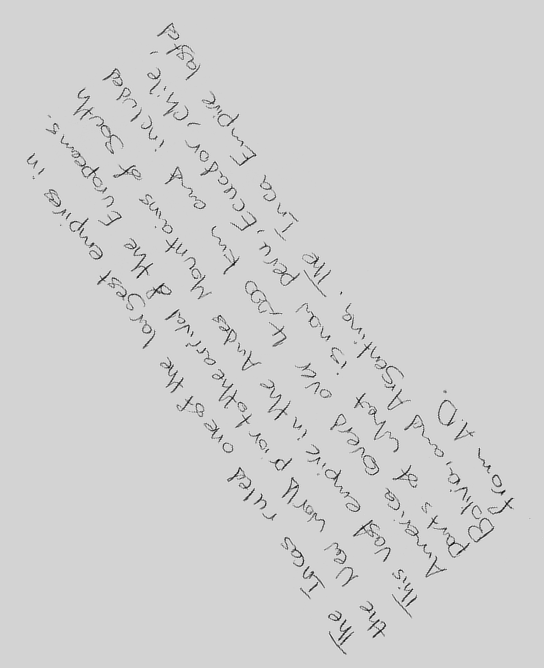 The Incas ruled one of the largest empires in
the New world prior to the arrival of the Europeans.
This vast empire in the Andes Mountains of South
America covers over 4,000 km and included
parts of what is now peru, Ecuador, chile,
Bolivia, and Argentina. The Inca Empire lasted
from A.D.